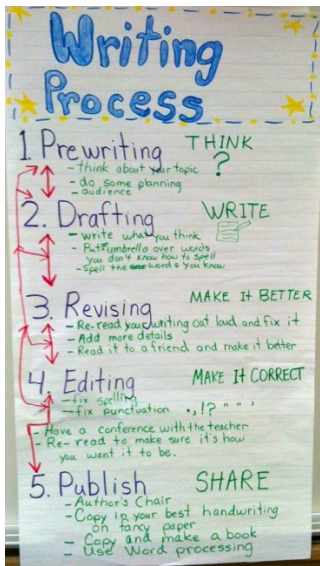 Writing
Process
1. Prewriting THINK
- think about your topic ?
- do some planning
- audience
2. Drafting WRITE
- write what you think
- Put umbrella over words
you don't know how to spell
- Spell the words you know
3. Revising MAKE IT BETTER
- Re-read your writing out loud and fix it
- Add more details
- Read it to a friend and make it better
4. Editing MAKE IT CORRECT
- fix spelling
- fix punctuation . , ! ? " " '
- Have a conference with the teacher
- Re-read to make sure it's how
you want it to be.
5. Publish SHARE
- Author's Chair
- Copy in your best handwriting
on fancy paper
- Copy and make a book
- Use Word processing